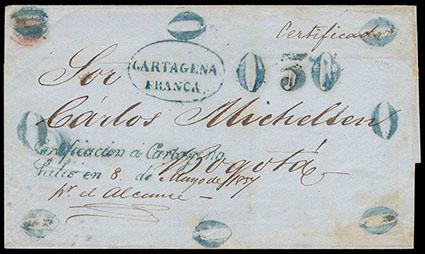 Certificada
CARTAGENA
FRANCA
50
Sor
Cárlos Michelsen
Bogotá
Certificacion á Cartagena
Salió en 8 de Mayo de 1857
pr. el Alcance